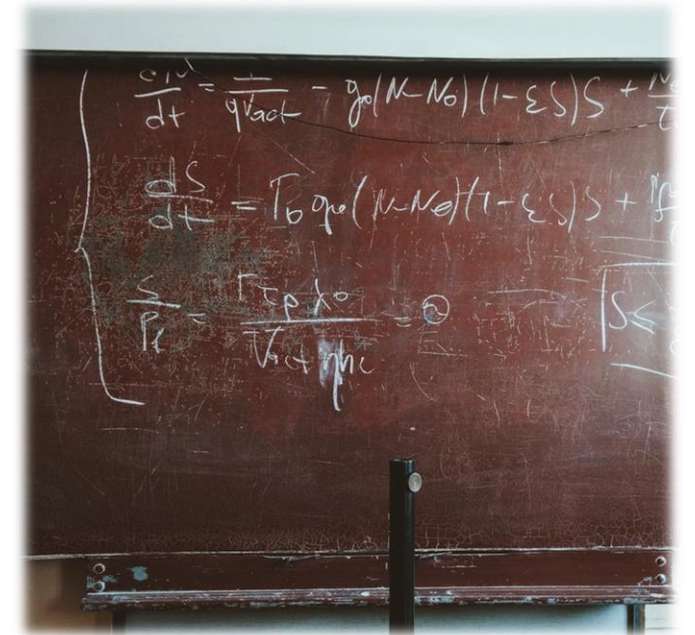 dN/dt = I/qVact - g0(N-N0)(1-εS)S +
dS/dt = Γ0 g0(N-N0)(1-εS)S +
S/Pf = Γτpλ0/Vact ηhc = ϑ
S≤